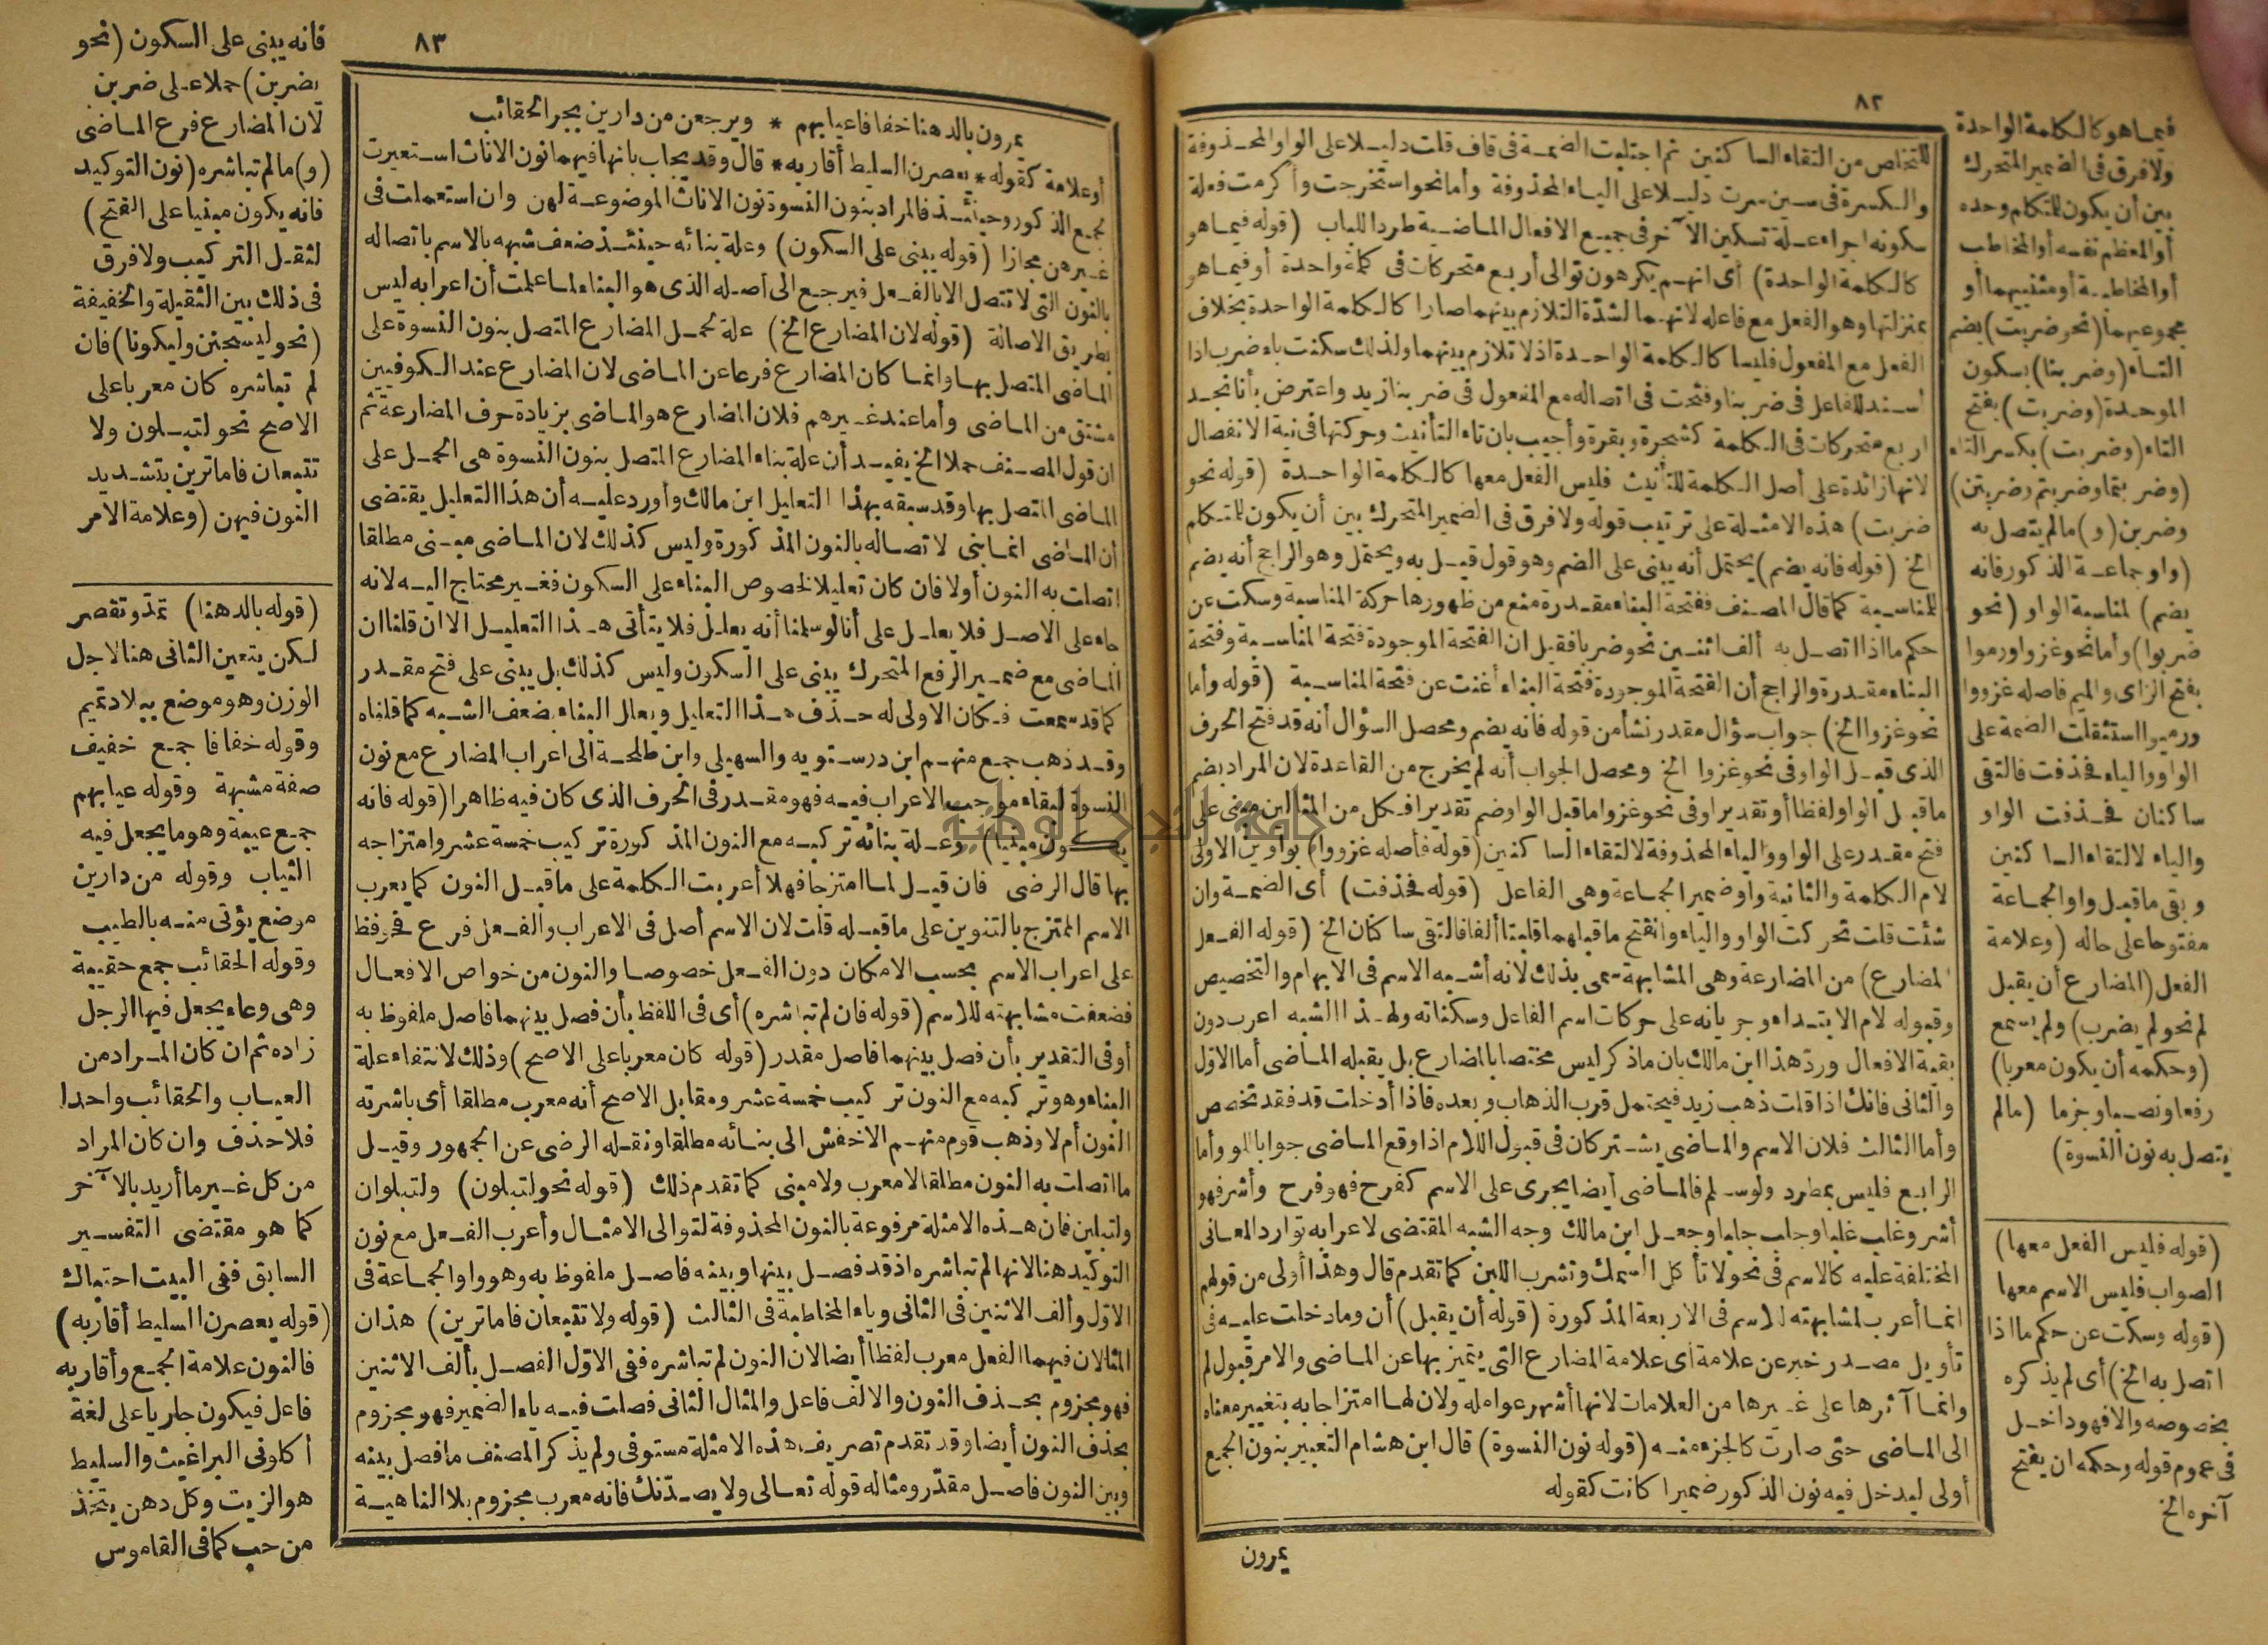 ٨٢
فيما هو كالكلمة الواحدة
ولا فرق في الضمير المتحرك
بين أن يكون للمتكلم وحده
أو المعظم نفسه أو المخاطب
أو المخاطبة أو مثنيهما أو
مجموعهما (نحو ضربت) بضم
التاء (وضربنا) بسكون
الموحدة (وضربت) بفتح
التاء (وضربت) بكسر التاء
(وضربتما وضربتم وضربتن)
وضربن (و) مالم يتصل به
(واو جماعة الذكور فانه
يضم) لمناسبة الواو (نحو
ضربوا) وأما نحو غزوا ورموا
بفتح الزاى والميم فاصله غزووا
ورميوا استثقلت الضمة على
الواو والياء فحذفت فالتقى
ساكنان فحذفت الواو
والياء لالتقاء الساكنين
وبقى ما قبل واو الجماعة
مفتوحا على حاله (وعلامة
الفعل (المضارع أن يقبل
لم نحو لم يضرب) ولم يسمع
(وحكمه أن يكون معربا)
رفعا ونصبا وجزما (مالم
يتصل به نون النسوة)
(قوله فليس الفعل معها)
الصواب فليس الاسم معها
(قوله وسكت عن حكم ما اذا
اتصل به الخ) أى لم يذكره
بخصوصه والا فهو داخل
فى عموم قوله وحكمه ان يفتح
آخره الخ
للتخلص من التقاء الساكنين ثم اجتلبت الضمة فى قاف قلت دليلا على الواو المحذوفة
والكسرة فى سين سرت دليلا على الياء المحذوفة وأما نحو استخرجت وأكرمت فعلة
سكونه اجراء علة تسكين الآخر فى جميع الافعال الماضية طردا للباب (قوله فيما هو
كالكلمة الواحدة) أى انهم يكرهون توالى أربع متحركات فى كلمة واحدة أو فيما هو
بمنزلتها وهو الفعل مع فاعله لانهما لشدّة التلازم بينهما صارا كالكلمة الواحدة بخلاف
الفعل مع المفعول فليسا كالكلمة الواحدة اذ لا تلازم بينهما ولذلك سكنت باء ضرب اذا
أسند للفاعل فى ضربنا وفتحت فى اتصاله مع المفعول فى ضربنا زيد واعترض بأنا نجد
اربع متحركات فى الكلمة كشجرة وبقرة وأجيب بان تاء التأنيث وحركتها فى نية الانفصال
لانها زائدة على أصل الكلمة للتأنيث فليس الفعل معها كالكلمة الواحدة (قوله نحو
ضربت) هذه الامثلة على ترتيب قوله ولا فرق فى الضمير المتحرك بين أن يكون للمتكلم
الخ (قوله فانه يضم) يحتمل أنه يبنى على الضم وهو قول قيل به ويحتمل وهو الراجح أنه يضم
للمناسبة كما قال المصنف ففتحة البناء مقدرة منع من ظهورها حركة المناسبة وسكت عن
حكم ما اذا اتصل به ألف اثنين نحو ضربا فقيل ان الفتحة الموجودة فتحة المناسبة وفتحة
البناء مقدرة والراجح أن الفتحة الموجودة فتحة البناء أغنت عن فتحة المناسبة (قوله وأما
نحو غزوا الخ) جواب سؤال مقدر نشأ من قوله فانه يضم ومحصل السؤال أنه قد فتح الحرف
الذى قبل الواو فى نحو غزوا الخ ومحصل الجواب أنه لم يخرج من القاعدة لان المراد بضم
ما قبل الواو لفظا أو تقديرا وفى نحو غزوا ما قبل الواو ضم تقديرا فكل من المثالين مبنى على
فتح مقدر على الواو والياء المحذوفة لالتقاء الساكنين (قوله فأصله غزووا) بواوين الاولى
لام الكلمة والثانية واو ضمير الجماعة وهى الفاعل (قوله فحذفت) أى الضمة وان
شئت قلت تحركت الواو والياء وانفتح ما قبلهما قلبتا ألفا فالتقى ساكنان الخ (قوله الفعل
المضارع) من المضارعة وهى المشابهة سمى بذلك لانه أشبه الاسم فى الابهام والتخصيص
وقبوله لام الابتداء وجريانه على حركات اسم الفاعل وسكناته ولهذا الشبه اعرب دون
بقية الافعال وردّ هذا ابن مالك بان ما ذكر ليس مختصا بالمضارع بل يقبله الماضى أما الاوّل
والثانى فانك اذا قلت ذهب زيد فيحتمل قرب الذهاب وبعده فاذا أدخلت قد فقد تخصص
وأما الثالث فلان الاسم والماضى يشتركان فى قبول اللام اذا وقع الماضى جوابا للو وأما
الرابع فليس بمطرد ولو سلم فالماضى أيضا يجرى على الاسم كفرح فهو فرح وأشر فهو
أشر وغلب غلبا وجلب جلبا وجعل ابن مالك وجه الشبه المقتضى لاعرابه توارد المعانى
المختلفة عليه كالاسم فى نحو لا تأكل السمك وتشرب اللبن كما تقدم قال وهذا أولى من قولهم
انما أعرب لمشابهته للاسم فى الاربعة المذكورة (قوله أن يقبل) أن وما دخلت عليه فى
تأويل مصدر خبر عن علامة أى علامة المضارع التى يتميز بها عن الماضى والامر قبول لم
وانما آثرها على غيرها من العلامات لانها أشهر عوامله ولان لها امتزاجا به بتغيير معناه
الى الماضى حتى صارت كالجزء منه (قوله نون النسوة) قال ابن هشام التعبير بنون الجمع
أولى ليدخل فيه نون الذكور ضميرا كانت كقوله
يمرون
٨٣
يمرون بالدهنا خفافا عيابهم * ويرجعن من دارين بجر الحقائب
أو علامة كقوله * يعصرن السليط أقاربه * قال وقد يجاب بانها فيهما نون الاناث استعيرت
لجمع الذكور وحينئذ فالمراد بنون النسوة نون الاناث الموضوعة لهن وان استعملت فى
غيرهن مجازا (قوله يبنى على السكون) وعلة بنائه حينئذ ضعف شبهه بالاسم باتصاله
بالنون التى لا تتصل الا بالفعل فيرجع الى أصله الذى هو البناء لما علمت أن اعرابه ليس
بطريق الاصالة (قوله لان المضارع الخ) علة لحمل المضارع المتصل بنون النسوة على
الماضى المتصل بها وانما كان المضارع فرعا عن الماضى لان المضارع عند الكوفيين
مشتق من الماضى وأما عند غيرهم فلان المضارع هو الماضى بزيادة حرف المضارعة ثم
ان قول المصنف حملا الخ يفيد أن علة بناء المضارع المتصل بنون النسوة هى الحمل على
الماضى المتصل بها وقد سبقه بهذا التعليل ابن مالك وأورد عليه أن هذا التعليل يقتضى
أن الماضى انما بنى لاتصاله بالنون المذكورة وليس كذلك لان الماضى مبنى مطلقا
اتصلت به النون أو لا فان كان تعليلا لخصوص البناء على السكون فغير محتاج اليه لانه
جاء على الاصل فلا يعلل على أنا لو سلمنا أنه يعلل فلا يتأتى هذا التعليل الا ان قلنا ان
الماضى مع ضمير الرفع المتحرك يبنى على السكون وليس كذلك بل يبنى على فتح مقدر
كما قد سمعت فكان الاولى له حذف هذا التعليل ويعلل البناء بضعف الشبه كما قلناه
وقد ذهب جمع منهم ابن درستويه والسهيلى وابن طلحة الى اعراب المضارع مع نون
النسوة لبقاء موجب الاعراب فيه فهو مقدر فى الحرف الذى كان فيه ظاهرا (قوله فانه
يكون مبنيا) وعلة بنائه تركبه مع النون المذكورة تركيب خمسة عشر وامتزاجه
بها قال الرضى فان قيل لما امتزجا فهلا أعربت الكلمة على ما قبل النون كما يعرب
الاسم الممتزج بالتنوين على ما قبله قلت لان الاسم أصل فى الاعراب والفعل فرع فحوفظ
على اعراب الاسم بحسب الامكان دون الفعل خصوصا والنون من خواص الافعال
فضعفت مشابهته للاسم (قوله فان لم تباشره) أى فى اللفظ بأن فصل بينهما فاصل ملفوظ به
أو فى التقدير بأن فصل بينهما فاصل مقدر (قوله كان معربا على الاصح) وذلك لانتفاء علة
البناء وهو تركبه مع النون تركيب خمسة عشر ومقابل الاصح أنه معرب مطلقا أى باشرته
النون أم لا وذهب قوم منهم الاخفش الى بنائه مطلقا ونقله الرضى عن الجمهور وقيل
ما اتصلت به النون مطلقا لا معرب ولا مبنى كما تقدم ذلك (قوله نحو لتبلون) ولتبلوان
ولتبلين فان هذه الامثلة مرفوعة بالنون المحذوفة لتوالى الامثال وأعرب الفعل مع نون
التوكيد هنا لانها لم تباشره اذ قد فصل بينها وبينه فاصل ملفوظ به وهو واو الجماعة فى
الاوّل وألف الاثنين فى الثانى وياء المخاطبة فى الثالث (قوله ولا تتبعان فاما ترين) هذان
المثالان فيهما الفعل معرب لفظا أيضا لان النون لم تباشره ففى الاوّل الفصل بألف الاثنين
فهو مجزوم بحذف النون والالف فاعل والمثال الثانى فصلت فيه ياء الضمير فهو مجزوم
بحذف النون أيضا وقد تقدم تصريف هذه الامثلة مستوفى ولم يذكر المصنف ما فصل بينه
وبين النون فاصل مقدّر ومثاله قوله تعالى ولا يصدّنك فانه معرب مجزوم بلا الناهية
فانه يبنى على السكون (نحو
يضربن) حملا على ضربن
لان المضارع فرع الماضى
(و) مالم تباشره (نون التوكيد
فانه يكون مبنيا على الفتح)
لثقل التركيب ولا فرق
فى ذلك بين الثقيلة والخفيفة
(نحو ليسجنن وليكونا) فان
لم تباشره كان معربا على
الاصح نحو لتبلون ولا
تتبعان فاما ترين بتشديد
النون فيهن (وعلامة الامر
(قوله بالدهنا) تمد وتقصر
لكن يتعين الثانى هنا لاجل
الوزن وهو موضع ببلاد تميم
وقوله خفافا جمع خفيف
صفة مشبهة وقوله عيابهم
جمع عيبة وهو ما يجعل فيه
الثياب وقوله من دارين
موضع يؤتى منه بالطيب
وقوله الحقائب جمع حقيبة
وهى وعاء يجعل فيها الرجل
زاده ثم ان كان المراد من
العياب والحقائب واحدا
فلا حذف وان كان المراد
من كل غير ما أريد بالآخر
كما هو مقتضى التفسير
السابق ففى البيت احتباك
(قوله يعصرن السليط أقاربه)
فالنون علامة الجمع وأقاربه
فاعل فيكون جاريا على لغة
أكلونى البراغيث والسليط
هو الزيت وكل دهن يتخذ
من حب كما فى القاموس